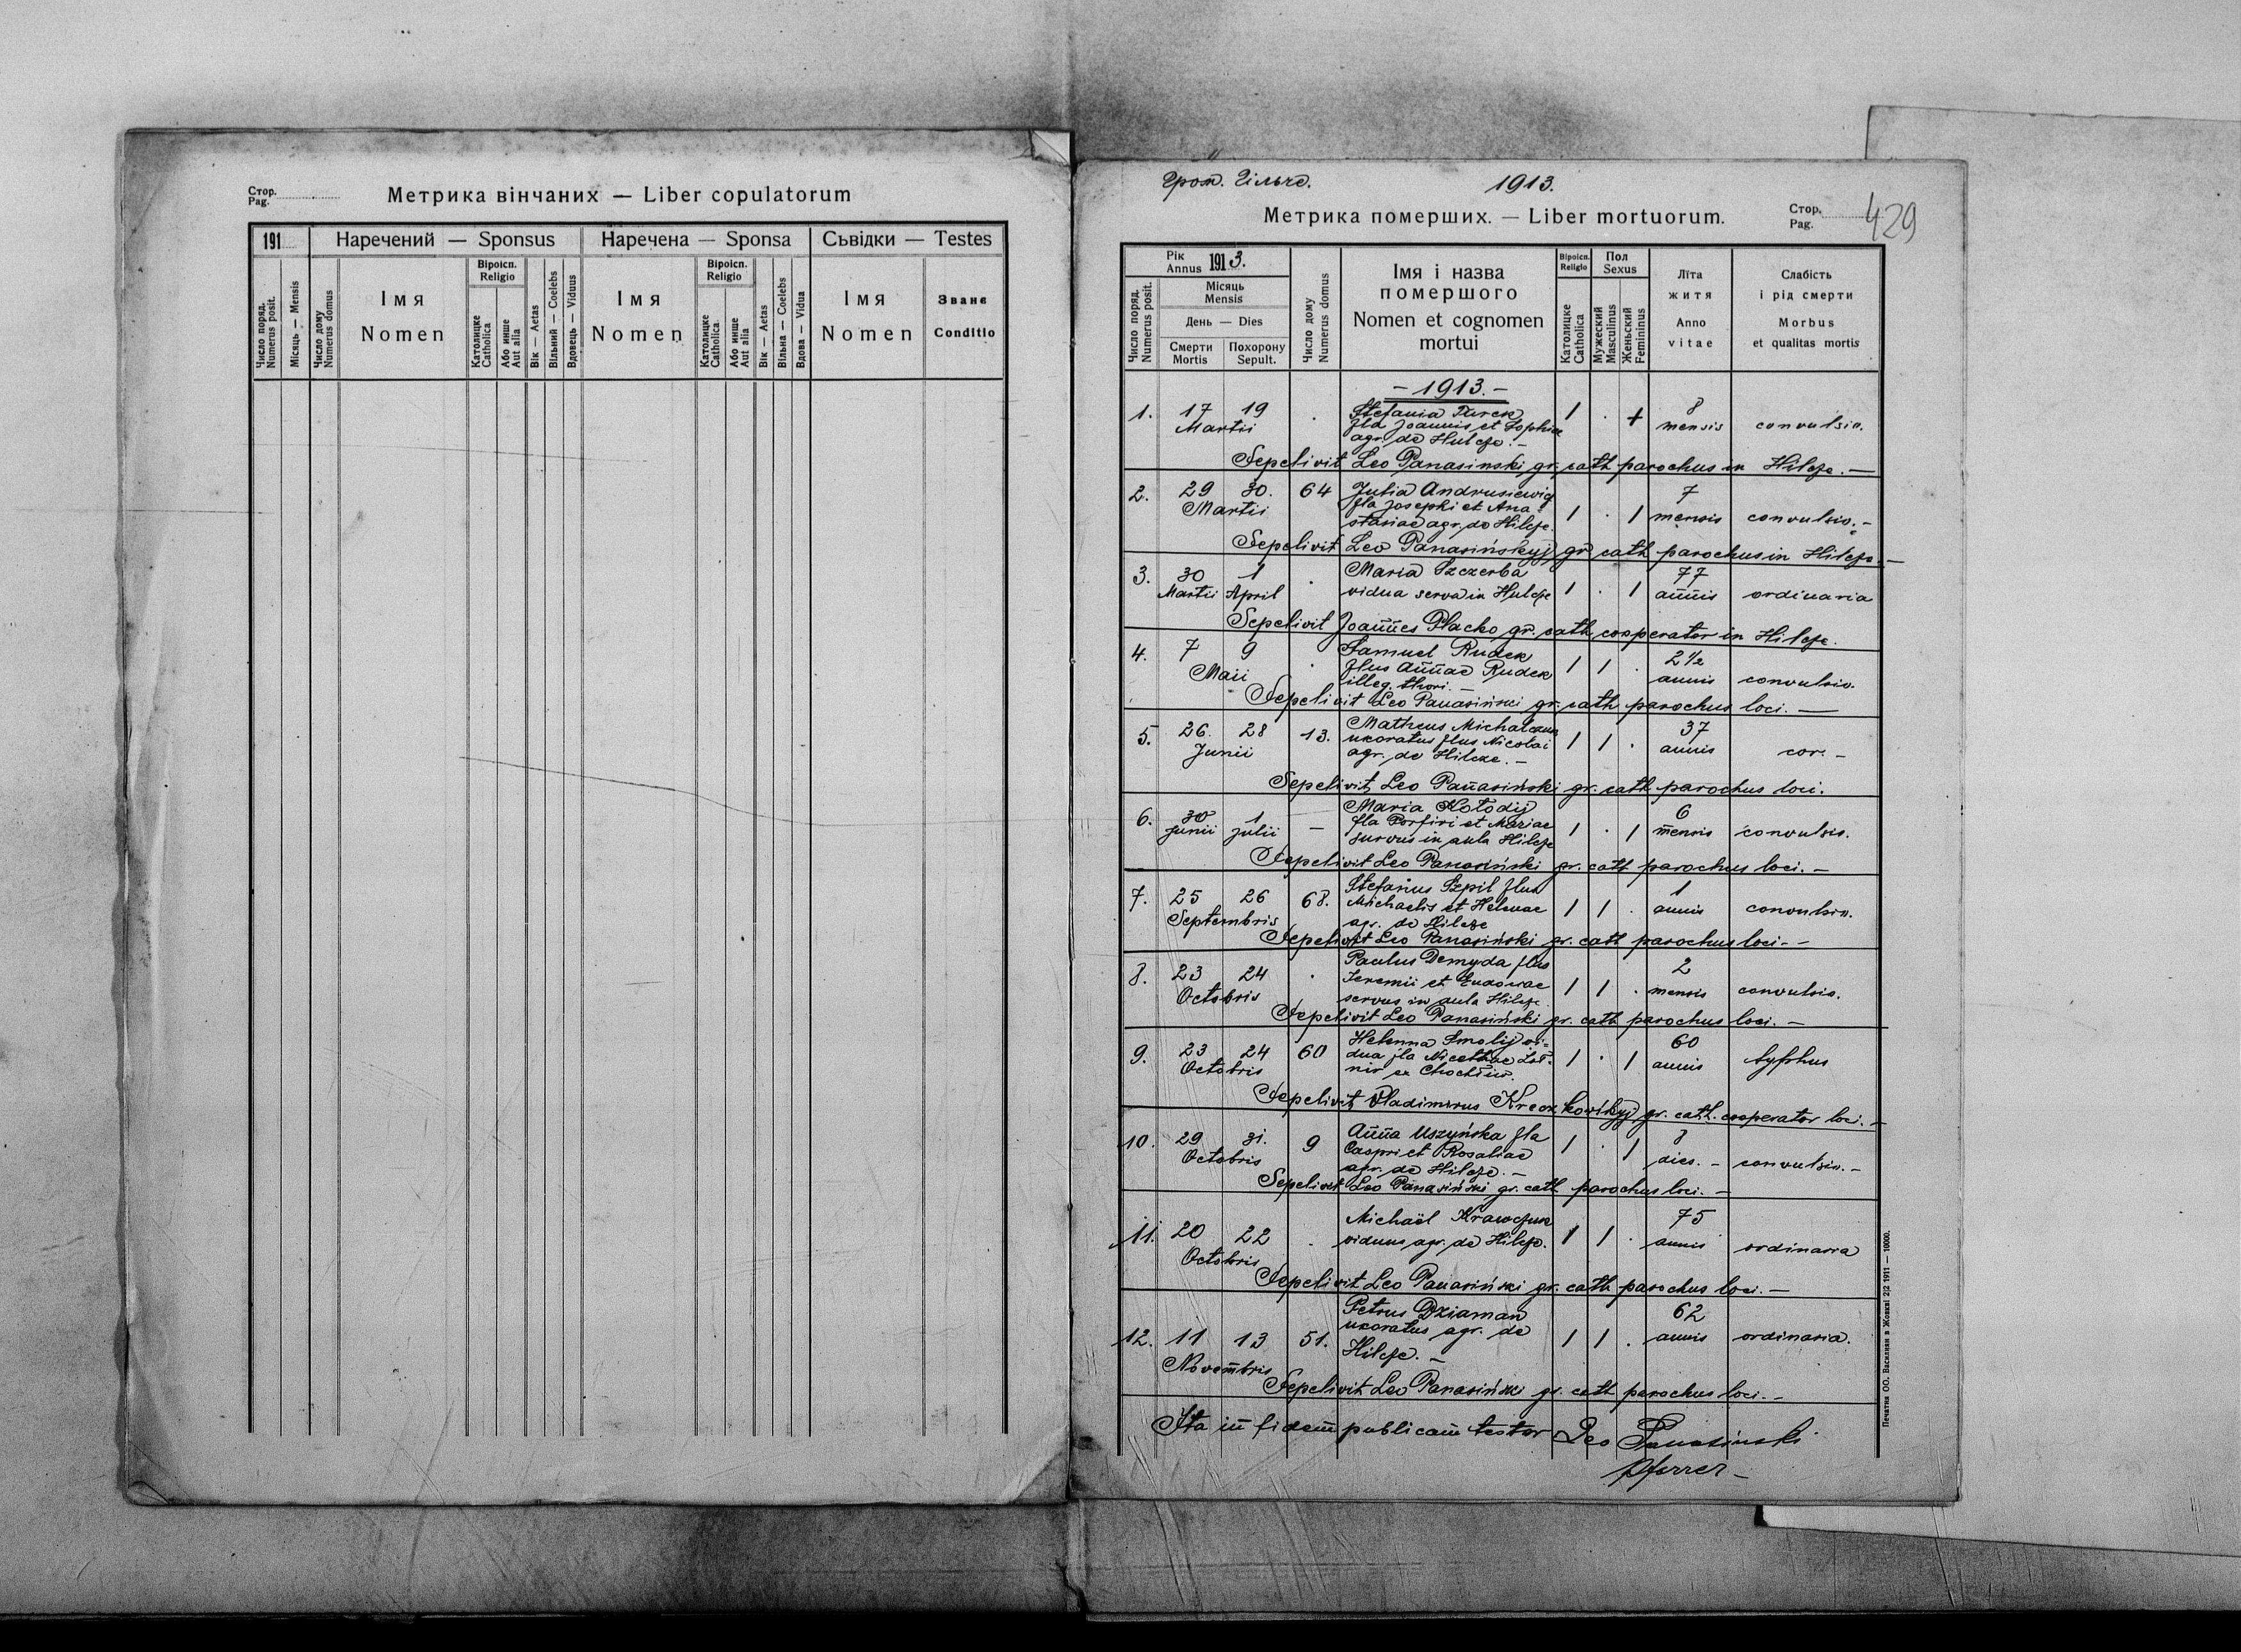 Стор.
Pag.
Метрика вінчаних — Liber copulatorum
191
Наречений — Sponsus
Наречена — Sponsa
Сьвідки — Testes
Число поряд.
Numerus posit.
Місяць — Mensis
Число дому
Numerus domus
Імя
Nomen
Віроісп.
Religio
Католицке
Catholica
Або инше
Aut alia
Вік — Aetas
Вільний — Coelebs
Вдовець — Viduus
Імя
Nomen
Віроісп.
Religio
Католицке
Catholica
Або инше
Aut alia
Вік — Aetas
Вільна — Coelebs
Вдова — Vidua
Імя
Nomen
Званє
Conditio
Гром. Гільче.
1913.
Метрика померших. — Liber mortuorum.
Стор.
Pag.
429
Рік
Annus 1913.
Число поряд.
Numerus posit.
Місяць
Mensis
День — Dies
Смерти
Mortis
Похорону
Sepult.
Число дому
Numerus domus
Імя і назва
помершого
Nomen et cognomen
mortui
Віроісп.
Religio
Католицке
Catholica
Пол
Sexus
Мужеский
Masculinus
Женьский
Femininus
Лїта
житя
Anno
vitae
Слабість
і рід смерти
Morbus
et qualitas mortis
- 1913. -
1. 17 19 . Stefania Turek 1 . + 8
Martii fla Joannis et Sophiae mensis convulsio.
agr. de Hulcze. -
Sepelivit Leo Panasinski gr. cath parochus in Hilcze. —
2. 29 30. 64 Julia Andrusiewicz 7
Martii fla Josephi et Ana= 1 . 1 mensis convulsio. -
stasiae agr. de Hilcze.
Sepelivit Leo Panasińskyj gr cath parochus in Hilcze. —
3. 30 1 . Maria Szczerba 1 . 1 77
Martii April vidua serva in Hulcze annis ordinaria
Sepelivit Joannes Placko gr. cath cooperator in Hilcze.
4. 7 9 . Samuel Rudek 1 1 . 2 1/2
Maii flus Annae Rudek annis convulsio.
illeg. thori. -
Sepelivit Leo Panasiński gr. cath parochus loci. —
5. 26. 28 13. Matheus Michalczuk 1 1 . 37
Junii uxoratus flus Nicolai annis cor. -
agr. de Hilcze. -
Sepelivit Leo Panasiński gr. cath parochus loci.
6. 30 1 — Maria Kołodij 1 . 1 6
Junii Julii fla Porfiri et Mariae mensis convulsio.
survus in aula Hilcze
Sepelivit Leo Panasiński gr. cath parochus loci. -
7. 25 26 68. Stefanus Szpil flus 1 1 . 1
Septembris Michaelis et Helenae annis convulsio.
agr. de Hilcze
Sepelivit Leo Panasiński gr. cath parochus loci. -
8. 23 24 . Paulus Demyda flus 1 1 . 2
Octobris Jeremii et Eudoxiae mensis convulsio.
servus in aula Hilcze.
Sepelivit Leo Panasiński gr. cath parochus loci. -
9. 23 24 60 Helenna Smolij vi= 1 . 1 60
Octobris dua fla annis typhus
ex
Sepelivit Vladimirus gr. cath. cooperator loci. -
10. 29 31. 9 Anna Uszyńska fla 1 . 1 8
Octobris Caspri et Rosaliae dies. - convulsio. -
agr. de Hilcze. -
Sepelivit Leo Panasiński gr. cath parochus loci. -
11. 20 22 . Michaël Krawczuk 1 1 . 75
Octobris viduus agr. de Hilcze. annis ordinaria
Sepelivit Leo Panasiński gr. cath parochus loci. -
12. 11 13 51. Petrus Dziaman 1 1 . 62
Novembris uxoratus agr. de annis ordinaria.
Hilcze. -
Sepelivit Leo Panasiński gr. cath parochus loci. -
Ita in fidem publicam testor Leo Panasinski
Pfarrer -
Печатня ОО. Василиян в Жовкві 2|2 1911 — 10000.